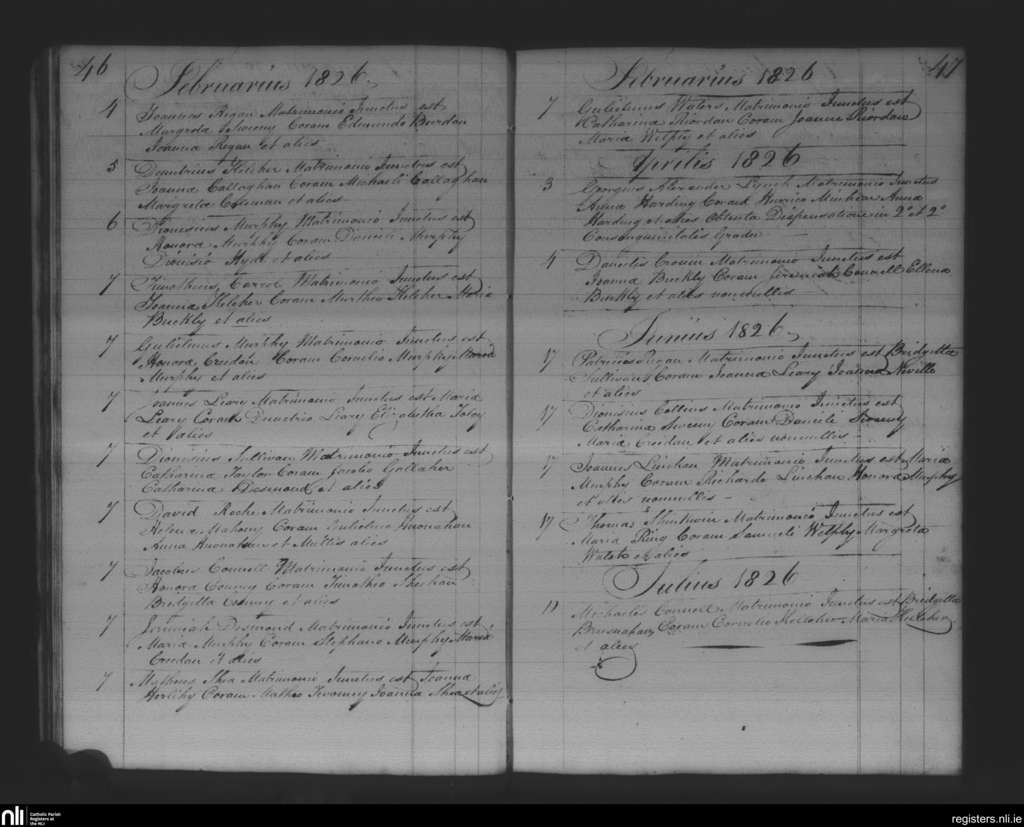 46
Februarius 1826
4 Joannes Regan Matrimonio Junctus est
Margreta Twomy Coram Edmundo Reardan
Joanna Regan et aliis
5 Demetrius Keleher Matrimonio Junctus est
Joanna Callaghan Coram Michaeli Callaghan
Margreta Coleman et aliis
6 Dionisius Murphy Matrimonio Junctus est
Honora Murphy Coram Dionisii Murphy
Dionisio Hyde et aliis
7 Timotheus Carrol Matrimonio Junctus est
Joanna Keleher Coram Murthio Keleher Maria
Buckly et aliis
7 Gulielmus Murphy Matrimonio Junctus est
Honora Creedan Coram Cornelio Murphy Maria
Murphy et aliis
7 Leary Matrimonio Junctus est Maria
Leary Coram Demetrio Leary Elizabetha Foley
et aliis
7 Dionisius Sullivan Matrimonio Junctus est
Catharina Coram Jacobo Gallaher
Catharina Desmond et aliis
7 David Roche Matrimonio Junctus est
Helena Mahony Coram Gulielmo Huonahan
Anna Huonahan et Multis aliis
7 Jacobus Connell Matrimonio Junctus est
Honora Couney Coram Timothio Sheehan
Bridgitta et aliis
7 Jeremiah Desmond Matrimonio Junctus est
Maria Murphy Coram Stephano Murphy Maria
Creedan et aliis
7 Matheus Shea Matrimonio Junctus est Joanna
Herlihy Coram Matheo Twomy Joanna Shea et aliis
47
Februarius 1826
7 Gulielmus Waters Matrimonio Junctus est
Katharina Riordan Coram Joanne Riordan
Maria Welply et aliis
Aprilis 1826
3 Georgius Alexander Lynch Matrimonio Junctus
Anna Harding Coram Henrico Minhear Anna
Harding et aliis Obtenta Dispensatione in 2º et 2º
Consanguinitatis Gradu
4 Daniel Cronin Matrimonio Junctus est
Joanna Buckly Coram Jeremiah Connell Ellena
Buckly et aliis nonnullis
Junius 1826
17 Patricius Matrimonio Junctus est Bridgitta
Sullivan Coram Joanna Leary Joanna Neville
et aliis
17 Dionisius Collins Matrimonio Junctus est
Catharina Sweeny Coram Daniele Sweeny
Maria Creedan et aliis nonnullis
17 Joannes Linehan Matrimonio Junctus est Maria
Murphy Coram Richardo Linehan Honora Murphy
et aliis nonnullis
17 Thomas Shinkwin Matrimonio Junctus est
Maria Ring Coram Samueli Welply Margreta
Walsh et aliis
Julius 1826
Michaelis Connell Matrimonio Junctus est Bridgitta
Brusnahan Coram Cornelio Kelleher Maria Kelleher
et aliis
nli
Catholic Parish
Registers at
the NLI
registers.nli.ie